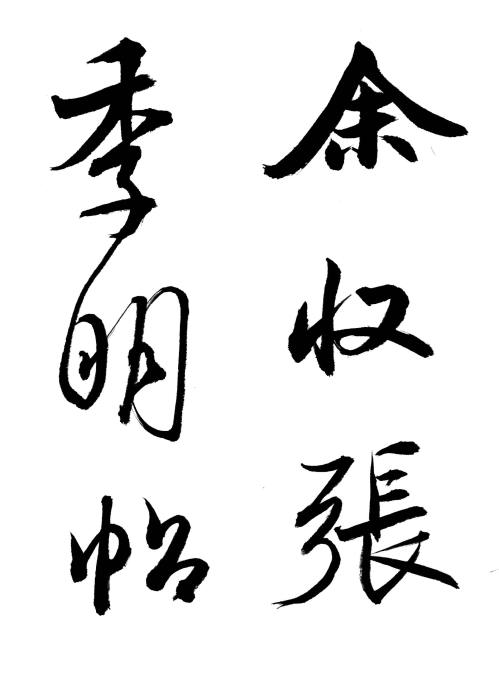 余収張
季明帖